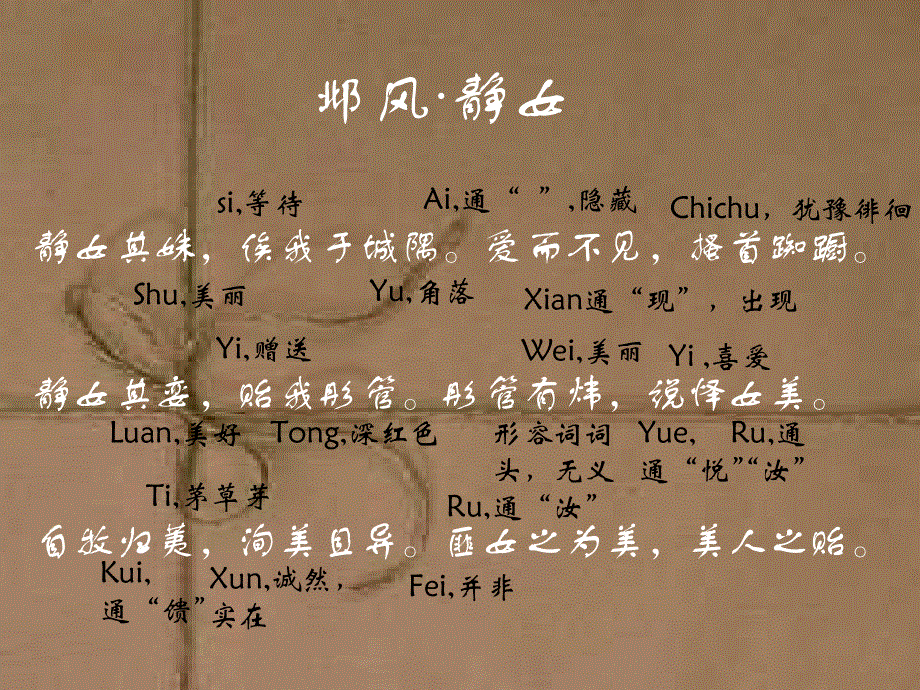 邶风·静女
si,等待 Ai,通“ ”,隐藏 Chichu，犹豫徘徊
静女其姝，俟我于城隅。爱而不见，搔首踟蹰。
Shu,美丽 Yu,角落 Xian通“现”，出现
Yi,赠送 Wei,美丽 Yi ,喜爱
静女其娈，贻我彤管。彤管有炜，说怿女美。
Luan,美好 Tong,深红色 形容词词 Yue, Ru,通
头，无义 通“悦”“汝”
Ti,茅草芽 Ru,通“汝”
自牧归荑，洵美且异。匪女之为美，美人之贻。
Kui, Xun,诚然， Fei,并非
通“馈”实在